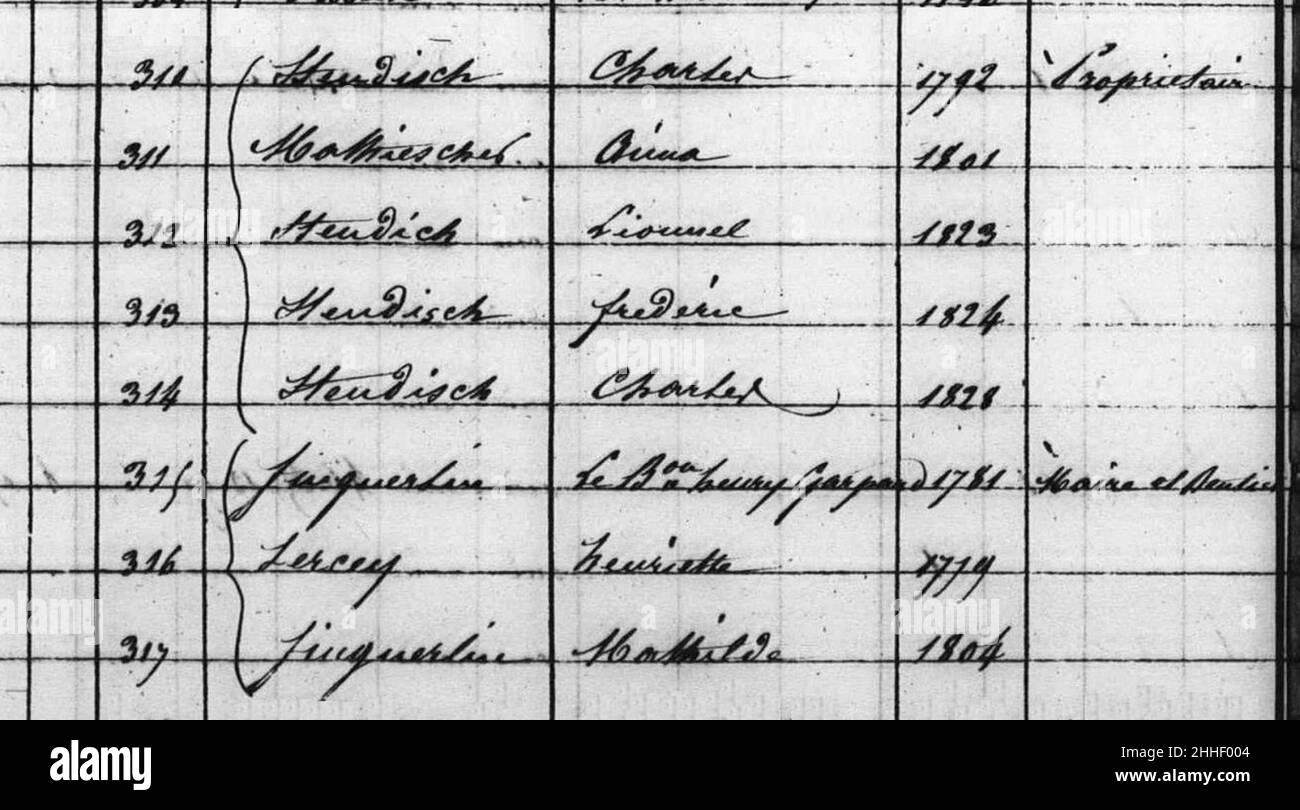 310 Standisch Charles 1792 Proprietair
311 Mathiescher Anna 1801
312 Standich Lionnel 1823
313 Standisch frédéric 1824
314 Standisch Charles 1828
315 Jinquerlin Le Bon henry Gaspard 1781 Maire et Rentier
316 Lercey henriette 1779
317 Jinquerlin Mathilde 1804
alamy
Image ID: 2HHF004
www.alamy.com